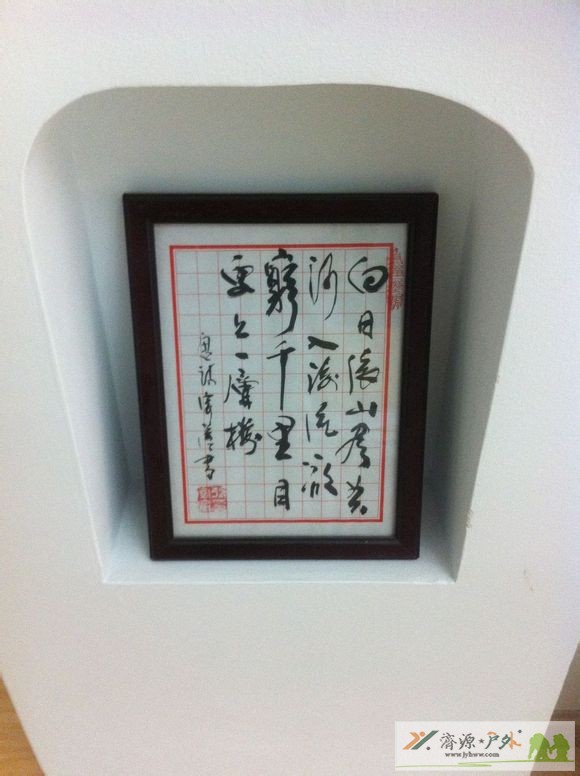 白日依山尽黄
河入海流欲
窮千里目
更上一層樓
書
濟源★户外
www.jyhww.com